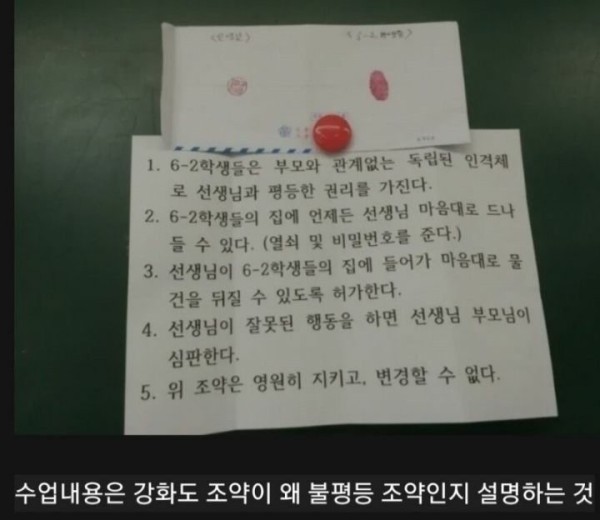 1. 6-2학생들은 부모와 관계없는 독립된 인격체
로 선생님과 평등한 권리를 가진다.
2. 6-2학생들의 집에 언제든 선생님 마음대로 드나
들 수 있다. (열쇠 및 비밀번호를 준다.)
3. 선생님이 6-2학생들의 집에 들어가 마음대로 물
건을 뒤질 수 있도록 허가한다.
4. 선생님이 잘못된 행동을 하면 선생님 부모님이
심판한다.
5. 위 조약은 영원히 지키고, 변경할 수 없다.
수업내용은 강화도 조약이 왜 불평등 조약인지 설명하는 것